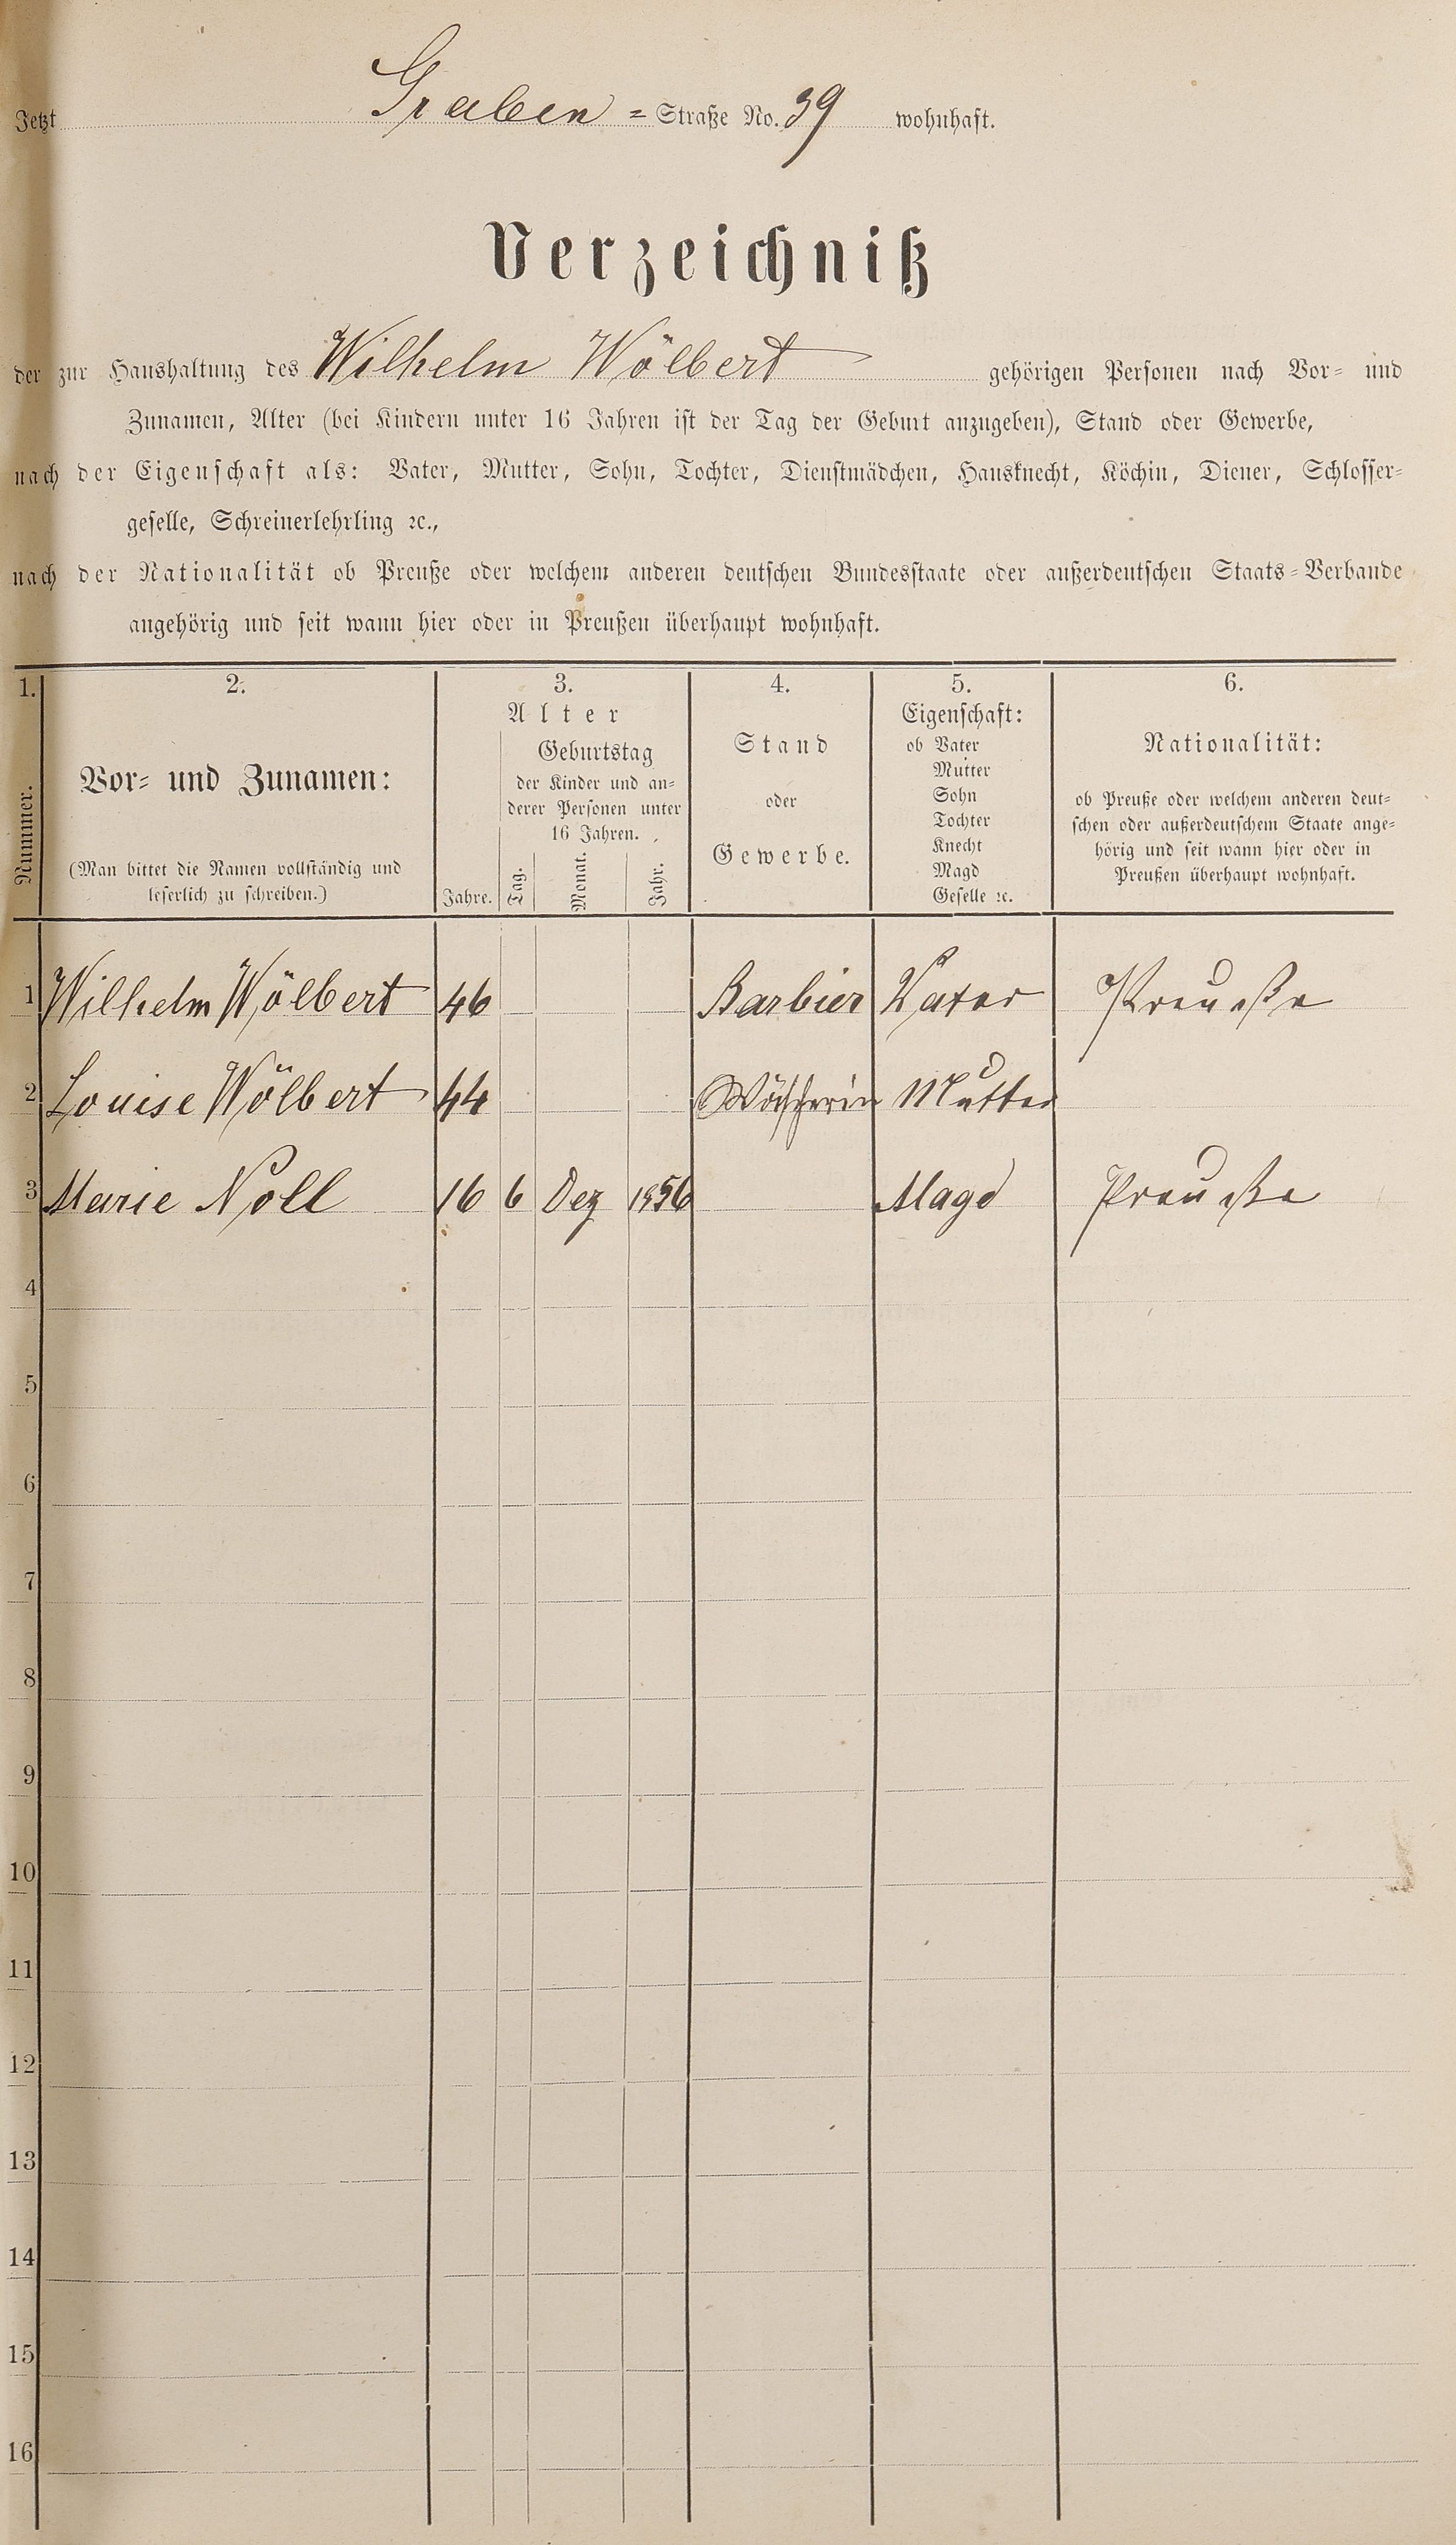 Jetzt Graben = Straße No. 39 wohnhaft.
Verzeichniß
der zur Haushaltung des Wilhelm Wölbert gehörigen Personen nach Vor= und
Zunamen, Alter (bei Kindern unter 16 Jahren ist der Tag der Geburt anzugeben), Stand oder Gewerbe,
nach der Eigenschaft als: Vater, Mutter, Sohn, Tochter, Dienstmädchen, Hausknecht, Köchin, Diener, Schlosser=
geselle, Schreinerlehrling ꝛc.,
nach der Nationalität ob Preuße oder welchem anderen deutschen Bundesstaate oder außerdeutschen Staats=Verbande
angehörig und seit wann hier oder in Preußen überhaupt wohnhaft.
1.
Nummer.
2.
Vor= und Zunamen:
(Man bittet die Namen vollständig und
leserlich zu schreiben.)
3.
Alter
Jahre.
Geburtstag
der Kinder und an=
derer Personen unter
16 Jahren.
Tag.
Monat.
Jahr.
4.
Stand
oder
Gewerbe.
5.
Eigenschaft:
ob Vater
Mutter
Sohn
Tochter
Knecht
Magd
Geselle ꝛc.
6.
Nationalität:
ob Preuße oder welchem anderen deut=
schen oder außerdeutschem Staate ange=
hörig und seit wann hier oder in
Preußen überhaupt wohnhaft.
1 Wilhelm Wölbert 46 Barbier Vater Preuße
2 Louise Wölbert 44 Wäscherin Mutter
3 Marie Noll 16 6 Dez 1856 Magd Preuße
4
5
6
7
8
9
10
11
12
13
14
15
16